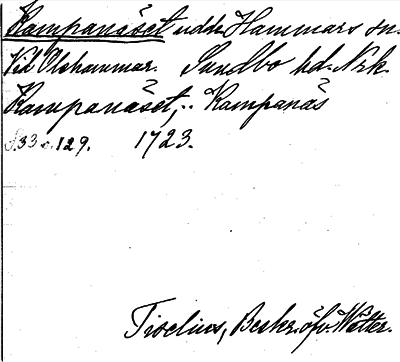 Kampanäset udde Hammars sn.
Vid Olshammar. Sundbo hd. Nrk.
Kampanäset,: Kampanäs
S. 33 o. 129. 1723.
Tiselius, Beskr. öfv. Wätter.